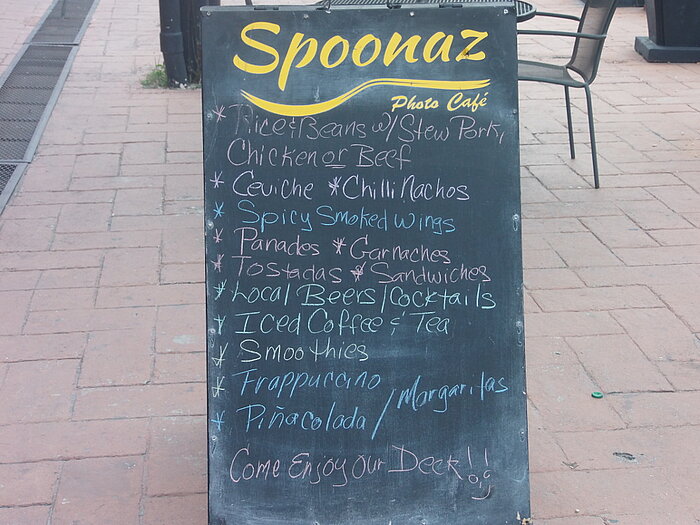 Spoonaz
Photo Café
* Rice & Beans w/ Stew Pork,
Chicken or Beef
* Ceviche * Chilli Nachos
* Spicy Smoked Wings
* Panades * Garnaches
* Tostadas * Sandwiches
* Local Beers/Cocktails
* Iced Coffee & Tea
* Smoothies
* Frappuccino
* Piñacolada / Margaritas
Come Enjoy Our Deck!!